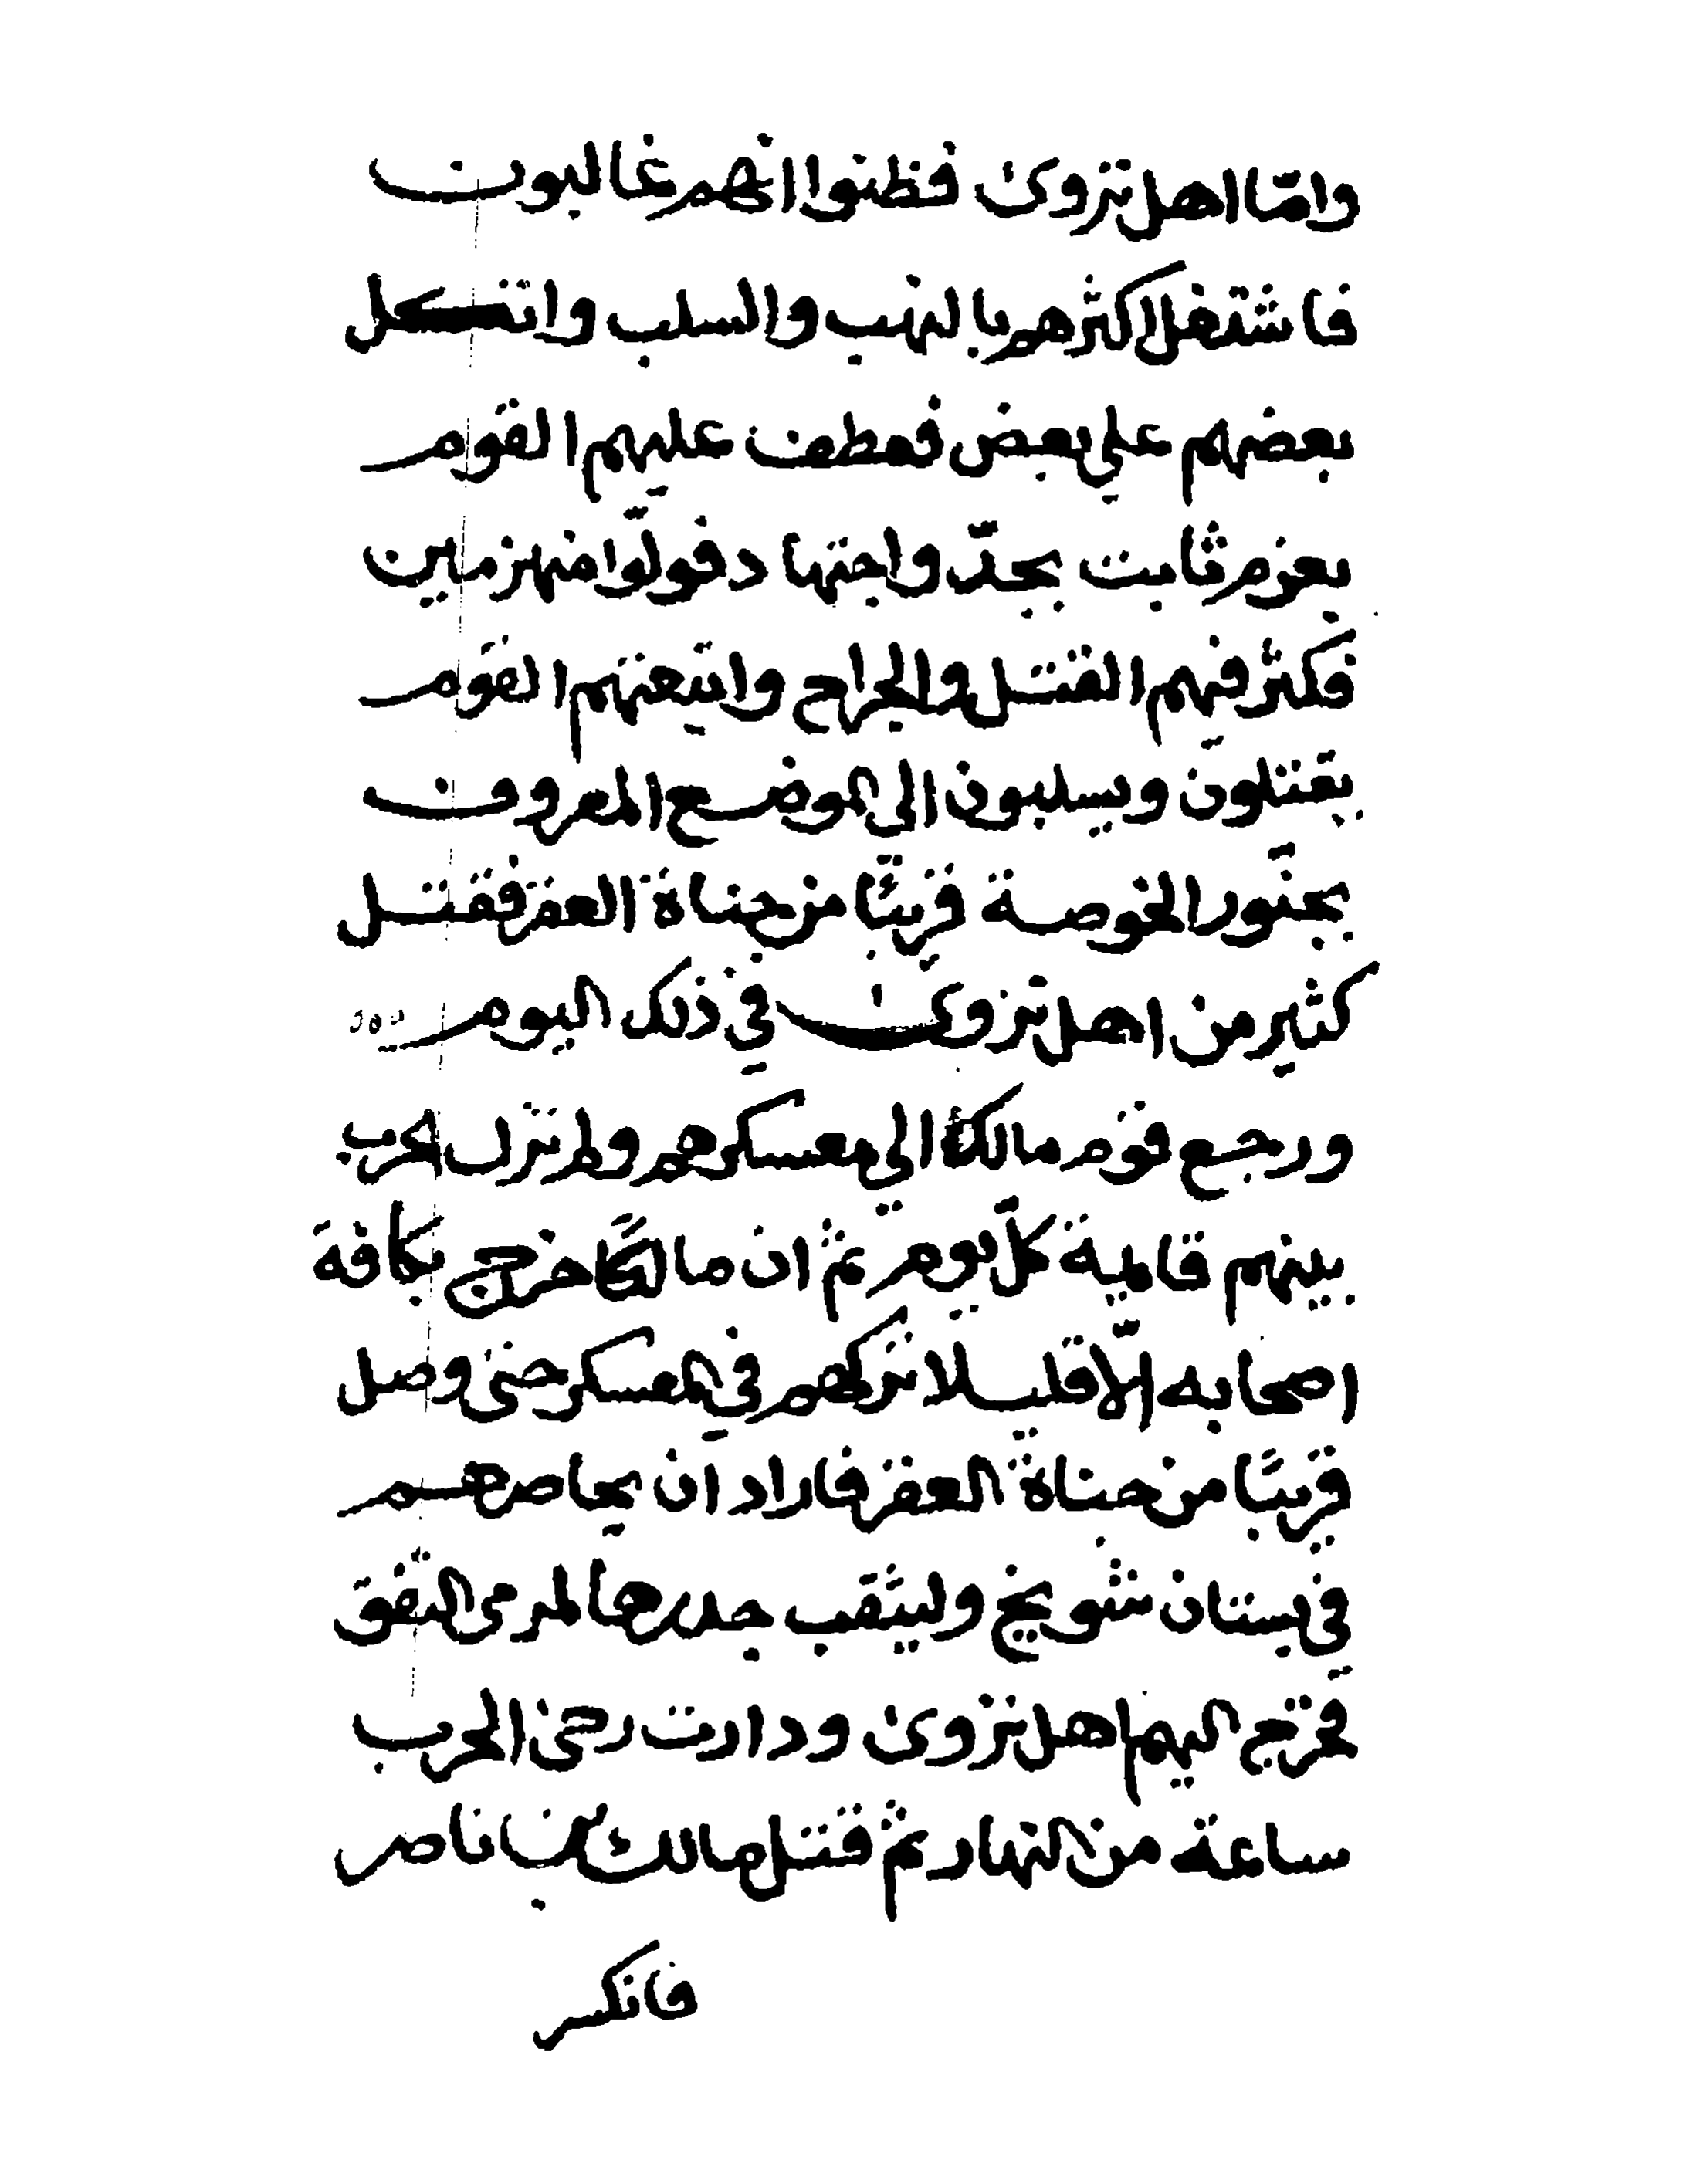 وامّا اهل نزوى فظنوا انهم غالبون
فاشتغل اكثرهم بالنهب والسلب واتكل
بعضهم علي بعض فعطف عليهم القوم
بعزم ثابت بجدّ واجتهاد فولّوا منهزمين
فكثر فيهم القتل والجراح واتبعتهم القوم
يقتلون ويسلبون الى الموضع المعروف
بجنّور الخوصة قريبًا من جناة العقر فقتل
كثير من اهل نزوى في ذلك اليوم
ورجع قوم مالك الي معسكرهم ولم تزل الحرب
بينهم قائمة كلّ يوم ثم ان مالكًا خرج بكافة
اصحابه الّا قليلا تركهم في المعسكر حتى وصل
قريبًا من جناة العقر فاراد ان يحاصرهم
في بستان شويخ وليثقب جدرها لمرمى التفق
فخرج اليهم اهل نزوى ودارت رحى الحرب
ساعة من النهار ثم قتل مالك بن ناصر
فانكسر